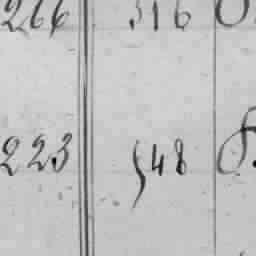 266 316
223 548